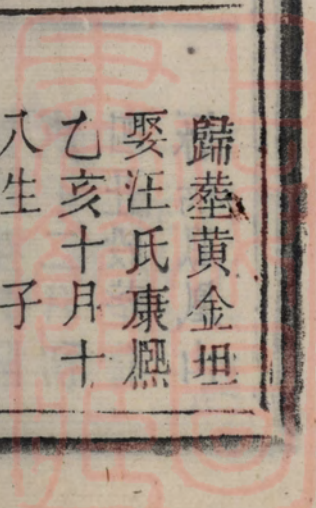 歸塟黄金坦
娶汪氏康熈
乙亥十月十
八生 子